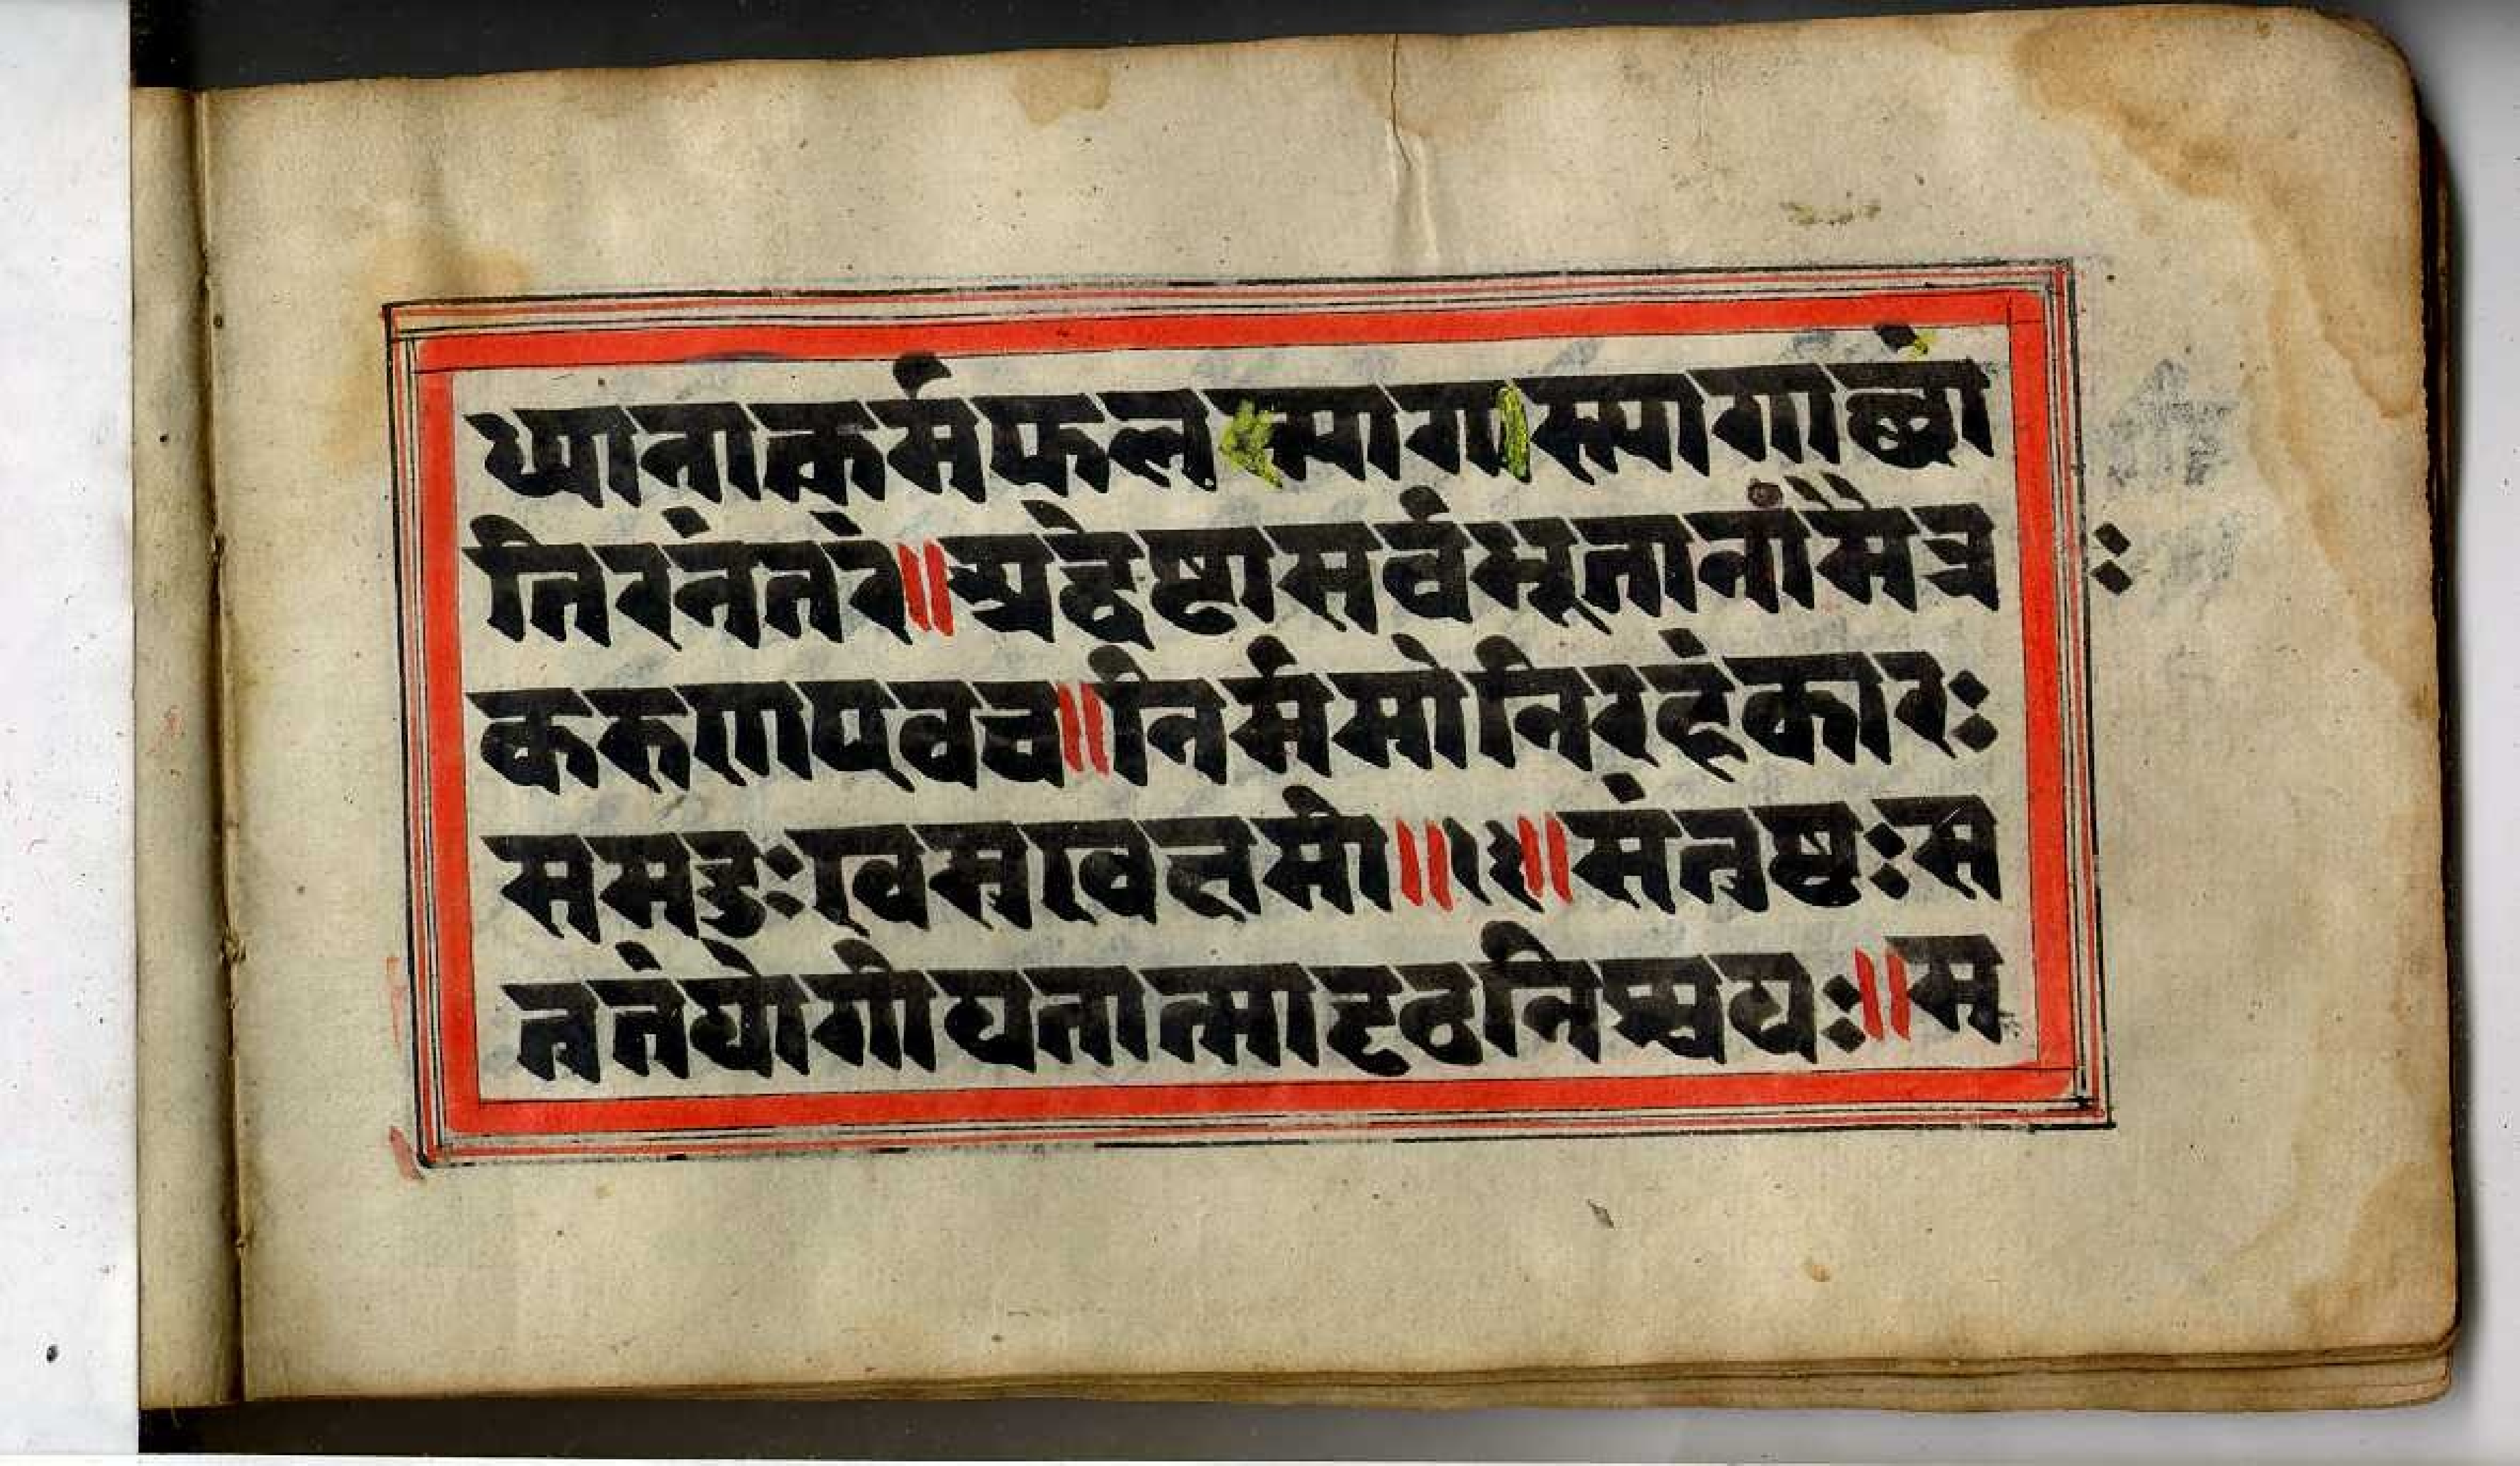 ध्यानात्कर्मफलत्यागस्त्यागाच्छां
तिरनंतरं॥अद्वेष्टासर्वभूतानांमैत्रः
करुणएवच॥निर्ममोनिरहंकारः
समदुःखसुखक्षमी॥१३॥संतुष्टःस
ततंयोगीयतात्मादृढनिश्चयः॥म